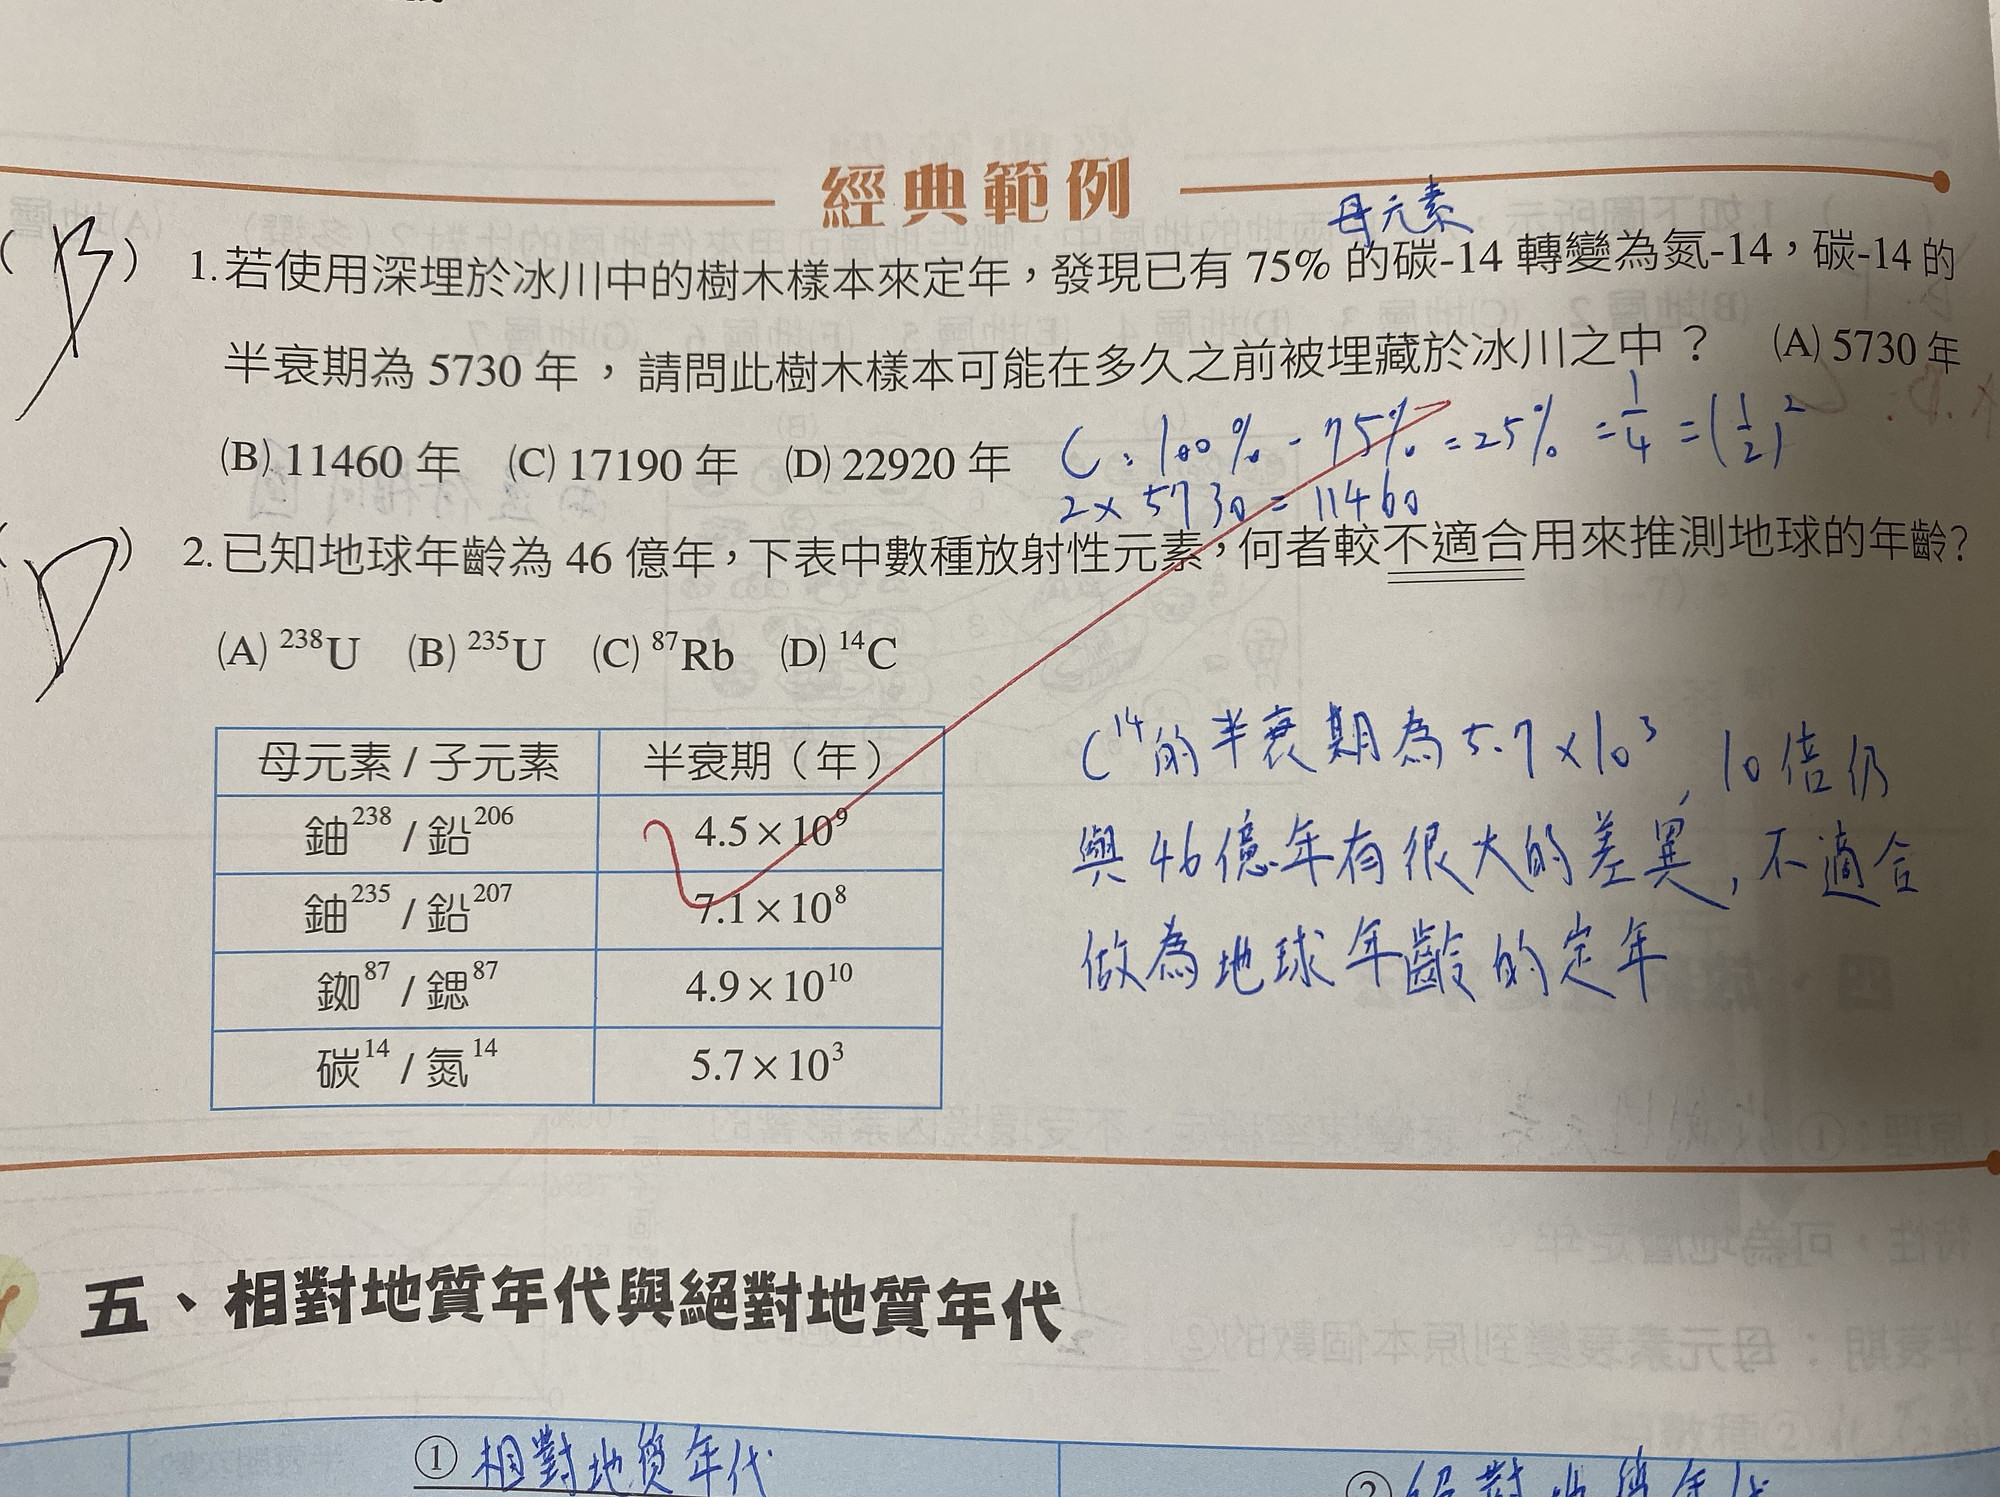 經典範例
母元素
(B) 1.若使用深埋於冰川中的樹木樣本來定年，發現已有 75% 的碳-14 轉變為氮-14，碳-14 的
半衰期為 5730 年，請問此樹木樣本可能在多久之前被埋藏於冰川之中？ (A) 5730 年
(B) 11460 年 (C) 17190 年 (D) 22920 年
C：100% - 75% = 25% = 1/4 = (1/2)²
2 × 5730 = 11460
(D) 2.已知地球年齡為 46 億年，下表中數種放射性元素，何者較不適合用來推測地球的年齡？
(A) ²³⁸U (B) ²³⁵U (C) ⁸⁷Rb (D) ¹⁴C
母元素 / 子元素 半衰期（年）
鈾²³⁸ / 鉛²⁰⁶ 4.5 × 10⁹
鈾²³⁵ / 鉛²⁰⁷ 7.1 × 10⁸
銣⁸⁷ / 鍶⁸⁷ 4.9 × 10¹⁰
碳¹⁴ / 氮¹⁴ 5.7 × 10³
C¹⁴的半衰期為5.7×10³，10倍仍
與46億年有很大的差異，不適合
做為地球年齡的定年
五、相對地質年代與絕對地質年代
① 相對地質年代
② 絕對地質年代